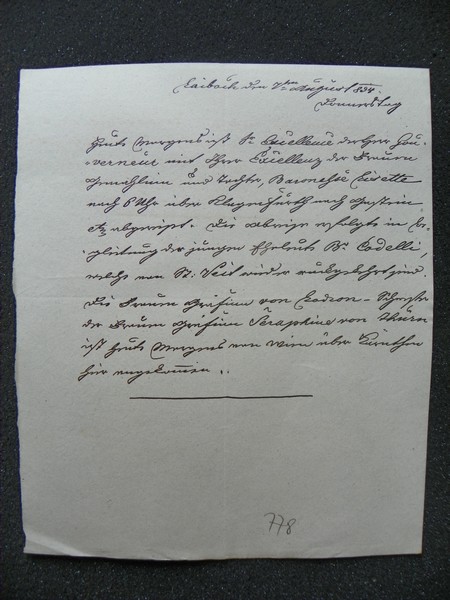 Laibach den 7ten August 834.
Donnerstag
Heute Morgens ist Sr Excellence der Herr Gou-
verneur mit Ihrer Excellenz der Frauen
Gemahlinn und Tochter, Baronesse Lisette
nach 6 Uhr über Klagenfurth nach Gastein
abgereist. Die Abreise erfolgte in Be-
gleitung der jungen Eheleute Br. Codelli,
welche von St: Veit wieder rückgekehrt sind.
Die Frauen Gräfinn von Lodron – Schwester
der Frauen Gräfinn Seraphine von Thurn
ist heute Morgens von Wien über Kärnthen
hier angekommen ..
778